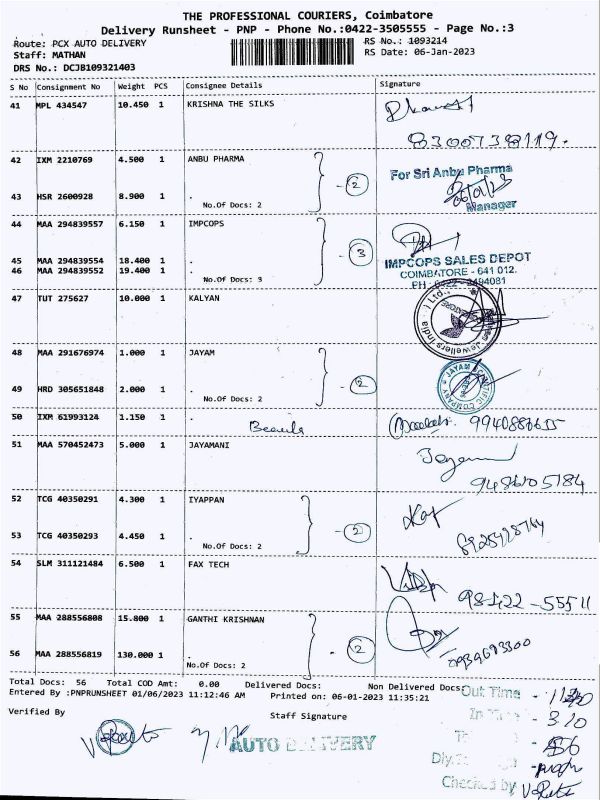 THE PROFESSIONAL COURIERS, Coimbatore
Delivery Runsheet - PNP - Phone No.:0422-3505555 - Page No.:3
Route: PCX AUTO DELIVERY
RS No.: 1093214
Staff: MATHAN
RS Date: 06-Jan-2023
DRS No.: DCJB109321403
S No Consignment No Weight PCS Consignee Details Signature
41 MPL 434547 10.450 1 KRISHNA THE SILKS
8300738119.
42 IXM 2210769 4.500 1 ANBU PHARMA
2
For Sri Anbu Pharma
43 HSR 2600928 8.900 1 .
No.Of Docs: 2
Manager
44 MAA 294839557 6.150 1 IMPCOPS
3
45 MAA 294839554 18.400 1 .
46 MAA 294839552 19.400 1 .
No.Of Docs: 3
IMPCOPS SALES DEPOT
COIMBATORE - 641 012.
47 TUT 275627 10.000 1 KALYAN
48 MAA 291676974 1.000 1 JAYAM
2
49 HRD 305651848 2.000 1 .
No.Of Docs: 2
50 IXM 61993124 1.150 1
51 MAA 570452473 5.000 1 JAYAMANI
52 TCG 40350291 4.300 1 IYAPPAN
2
53 TCG 40350293 4.450 1 .
No.Of Docs: 2
54 SLM 311121484 6.500 1 FAX TECH
55 MAA 288556808 15.800 1 GANTHI KRISHNAN
2
56 MAA 288556819 130.000 1 .
No.Of Docs: 2
Total Docs: 56 Total COD Amt: 0.00 Delivered Docs: Non Delivered Docs:
Entered By :PNPRUNSHEET 01/06/2023 11:12:46 AM Printed on: 06-01-2023 11:35:21
Out Time
Verified By Staff Signature
AUTO DELIVERY
Checked by